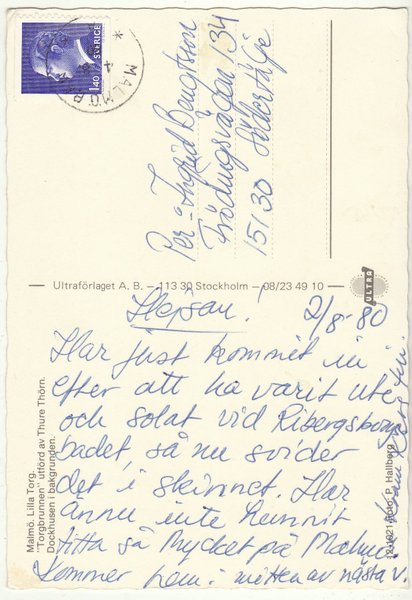 Hejsan! 2/8-80
Har just kommit in
efter att ha varit ute
och solat vid Ribergsborgs
badet, så nu svider
det i skinnet. Har
ännu inte hunnit
titta så mycket på Malmö.
Kommer hem i mitten av nästa v.
Kram
Per o Ingrid Bengtsson
134
15130 Södertälje
SVERIGE
1.40
MALMÖ
Ultraförlaget A. B. – 113 30 Stockholm – 08/23 49 10
ULTRA
Malmö. Lilla Torg.
"Torgbrunnen" utförd av Thure Thörn.
Dockhusen i bakgrunden.
Foto: P. Hallberg